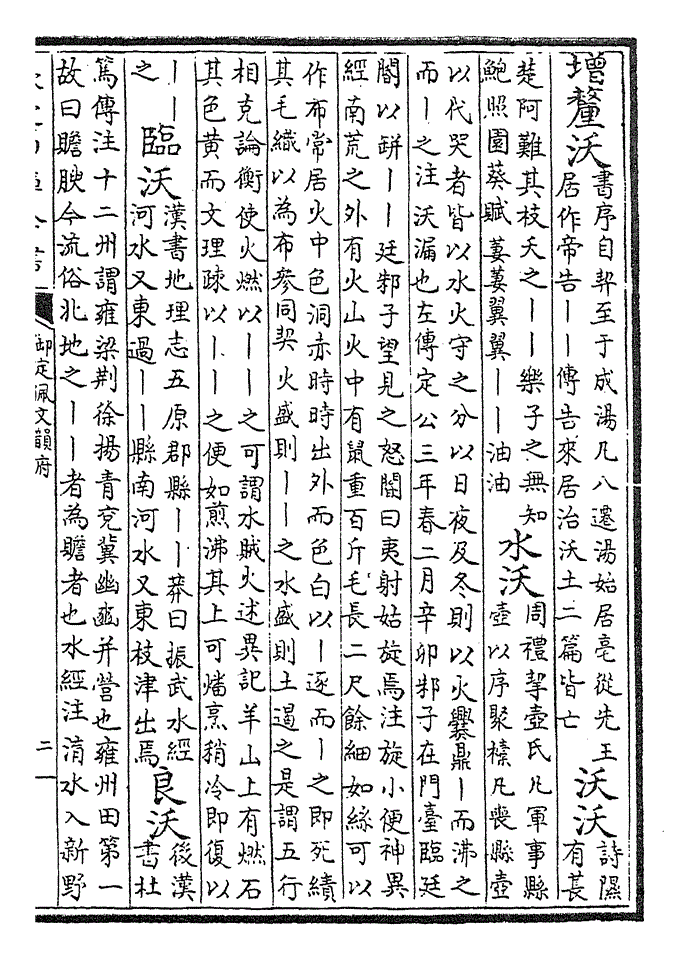 增釐沃書序自契至于成湯凡八遷湯始居亳從先王居作帝告丨丨傳告來居治沃土二篇皆亡沃沃詩隰有萇
楚阿難其枝夭之丨丨樂子之無知鮑照園葵賦萋萋翼翼丨丨油油水沃周禮挈壺氏凡軍事縣壺以序聚㯓凡喪縣壺
以代哭者皆以水火守之分以日夜及冬則以火爨鼎丨而沸之
而丨之注沃漏也左傳定公三年春二月辛卯邾子在門臺臨廷
閽以缾丨丨廷邾子望見之怒閽曰夷射姑旋焉注旋小便神異
經南荒之外有火山火中有鼠重百斤毛長二尺餘細如絲可以
作布常居火中色洞赤時時出外而色白以丨逐而丨之即死績
其毛織以為布參同契火盛則丨丨之水盛則土遏之是謂五行
相克論衡使火燃以丨丨之可謂水賊火述異記羊山上有燃石
其色黄而文理疎以丨丨之便如煎沸其上可燔烹稍冷即復以
丨丨之臨沃漢書地理志五原郡縣丨丨莽曰振武水經河水又東過丨丨縣南河水又東枝津出焉良沃後漢書杜
篤傳注十二州謂雍梁荆徐揚青兖冀幽并營也雍州田第一
故曰贍腴今流俗北地之丨丨者為贍者也水經注淯水入新野
御定佩文韻府
二